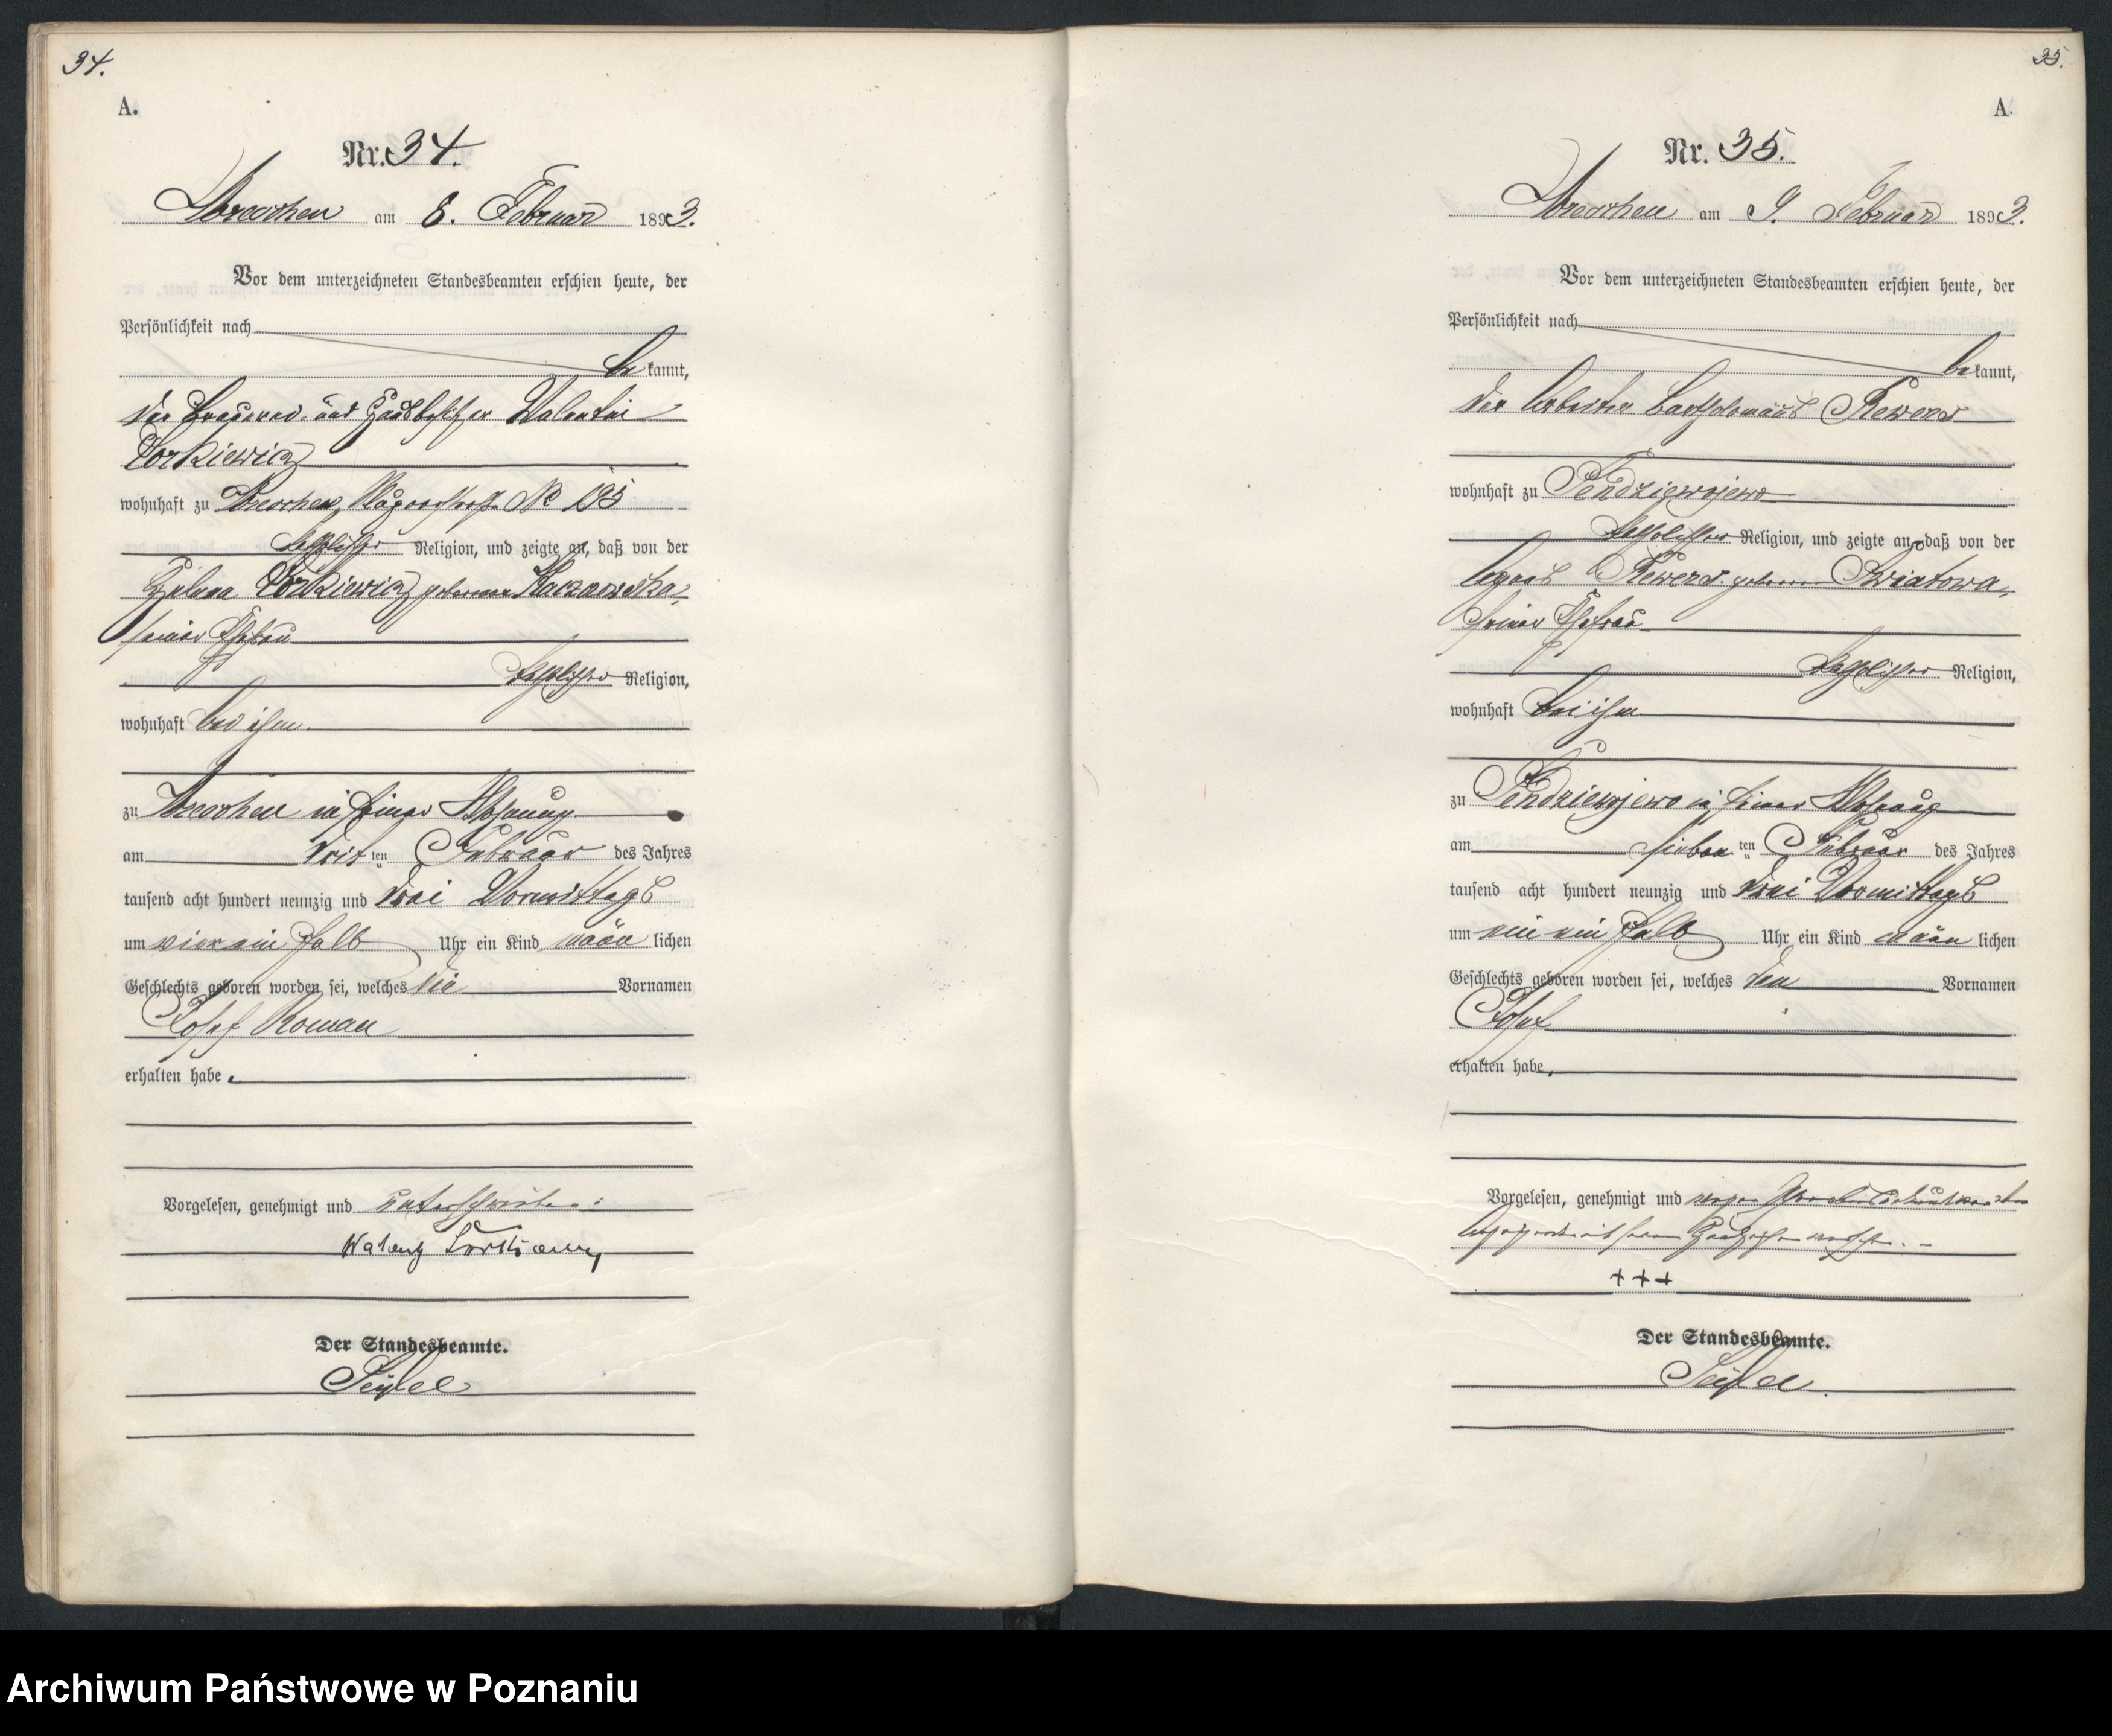 34.
A.
Nr. 34.
Wreschen am 8. Februar 1893.
Vor dem unterzeichneten Standesbeamten erschien heute, der
Persönlichkeit nach
be kannt,
der Brauerei- und Gutsbesitzer Valentin
wohnhaft zu Wreschen, No 195
katholischer Religion, und zeigte an, daß von der
geborene
seiner Ehefrau
katholischer Religion,
wohnhaft bei ihm
zu Wreschen in seiner Wohnung
am drit ten Februar des Jahres
tausend acht hundert neunzig und drei Vormittags
um vier ein halb Uhr ein Kind männ lichen
Geschlechts geboren worden sei, welches die Vornamen
Josef Roman
erhalten habe.
Vorgelesen, genehmigt und unterschrieben:
Der Standesbeamte.
35.
A.
Nr. 35.
Wreschen am 9. Februar 1893.
Vor dem unterzeichneten Standesbeamten erschien heute, der
Persönlichkeit nach
be kannt,
der Arbeiter Bartholomäus Rewers
wohnhaft zu Pendziewojewo
katholischer Religion, und zeigte an, daß von der
Agnes Rewers geborene Kwiatowa,
seiner Ehefrau
katholischer Religion,
wohnhaft bei ihm
zu Pendziewojewo in seiner Wohnung
am sieben ten Februar des Jahres
tausend acht hundert neunzig und drei Vormittags
um ein halb Uhr ein Kind männ lichen
Geschlechts geboren worden sei, welches den Vornamen
Josef
erhalten habe.
Vorgelesen, genehmigt und wegen
+++
Der Standesbeamte.
Archiwum Państwowe w Poznaniu